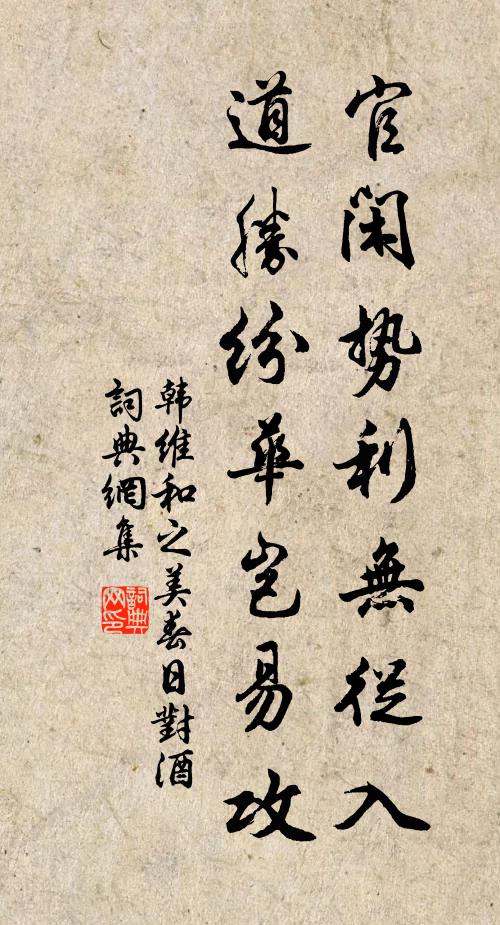 官閑势利無從入
道勝纷華岂易攻
韩维和之美春日對酒
詞典網集
詞典网印